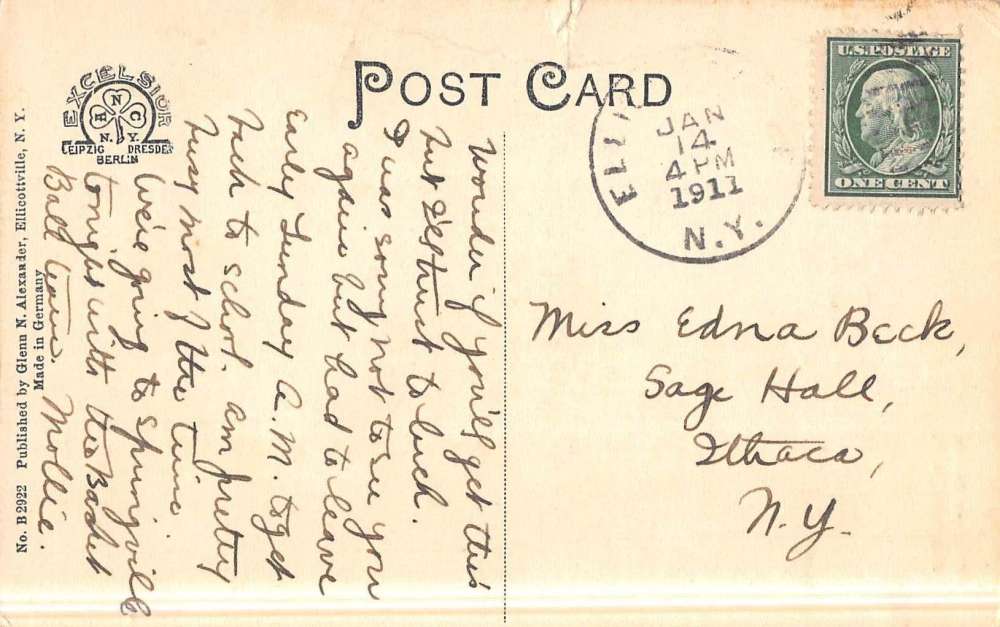 POST CARD
EXCELSIOR
H N C
N. Y.
LEIPZIG DRESDEN
BERLIN
No. B 2922 Published by Glenn N. Alexander, Ellicottville, N. Y.
Made in Germany
Wonder if you'll get this
but I'll trust to luck.
I was sorry not to see you
again but had to leave
early Sunday A.M. to get
back to school. Am pretty
busy most of the time.
We're going to Springville
tonight with the Basket
Ball team. Mollie.
ELLI
JAN
14
4 PM
1911
N.Y.
U.S. POSTAGE
ONE CENT
Miss Edna Beck,
Sage Hall,
Ithaca,
N.Y.